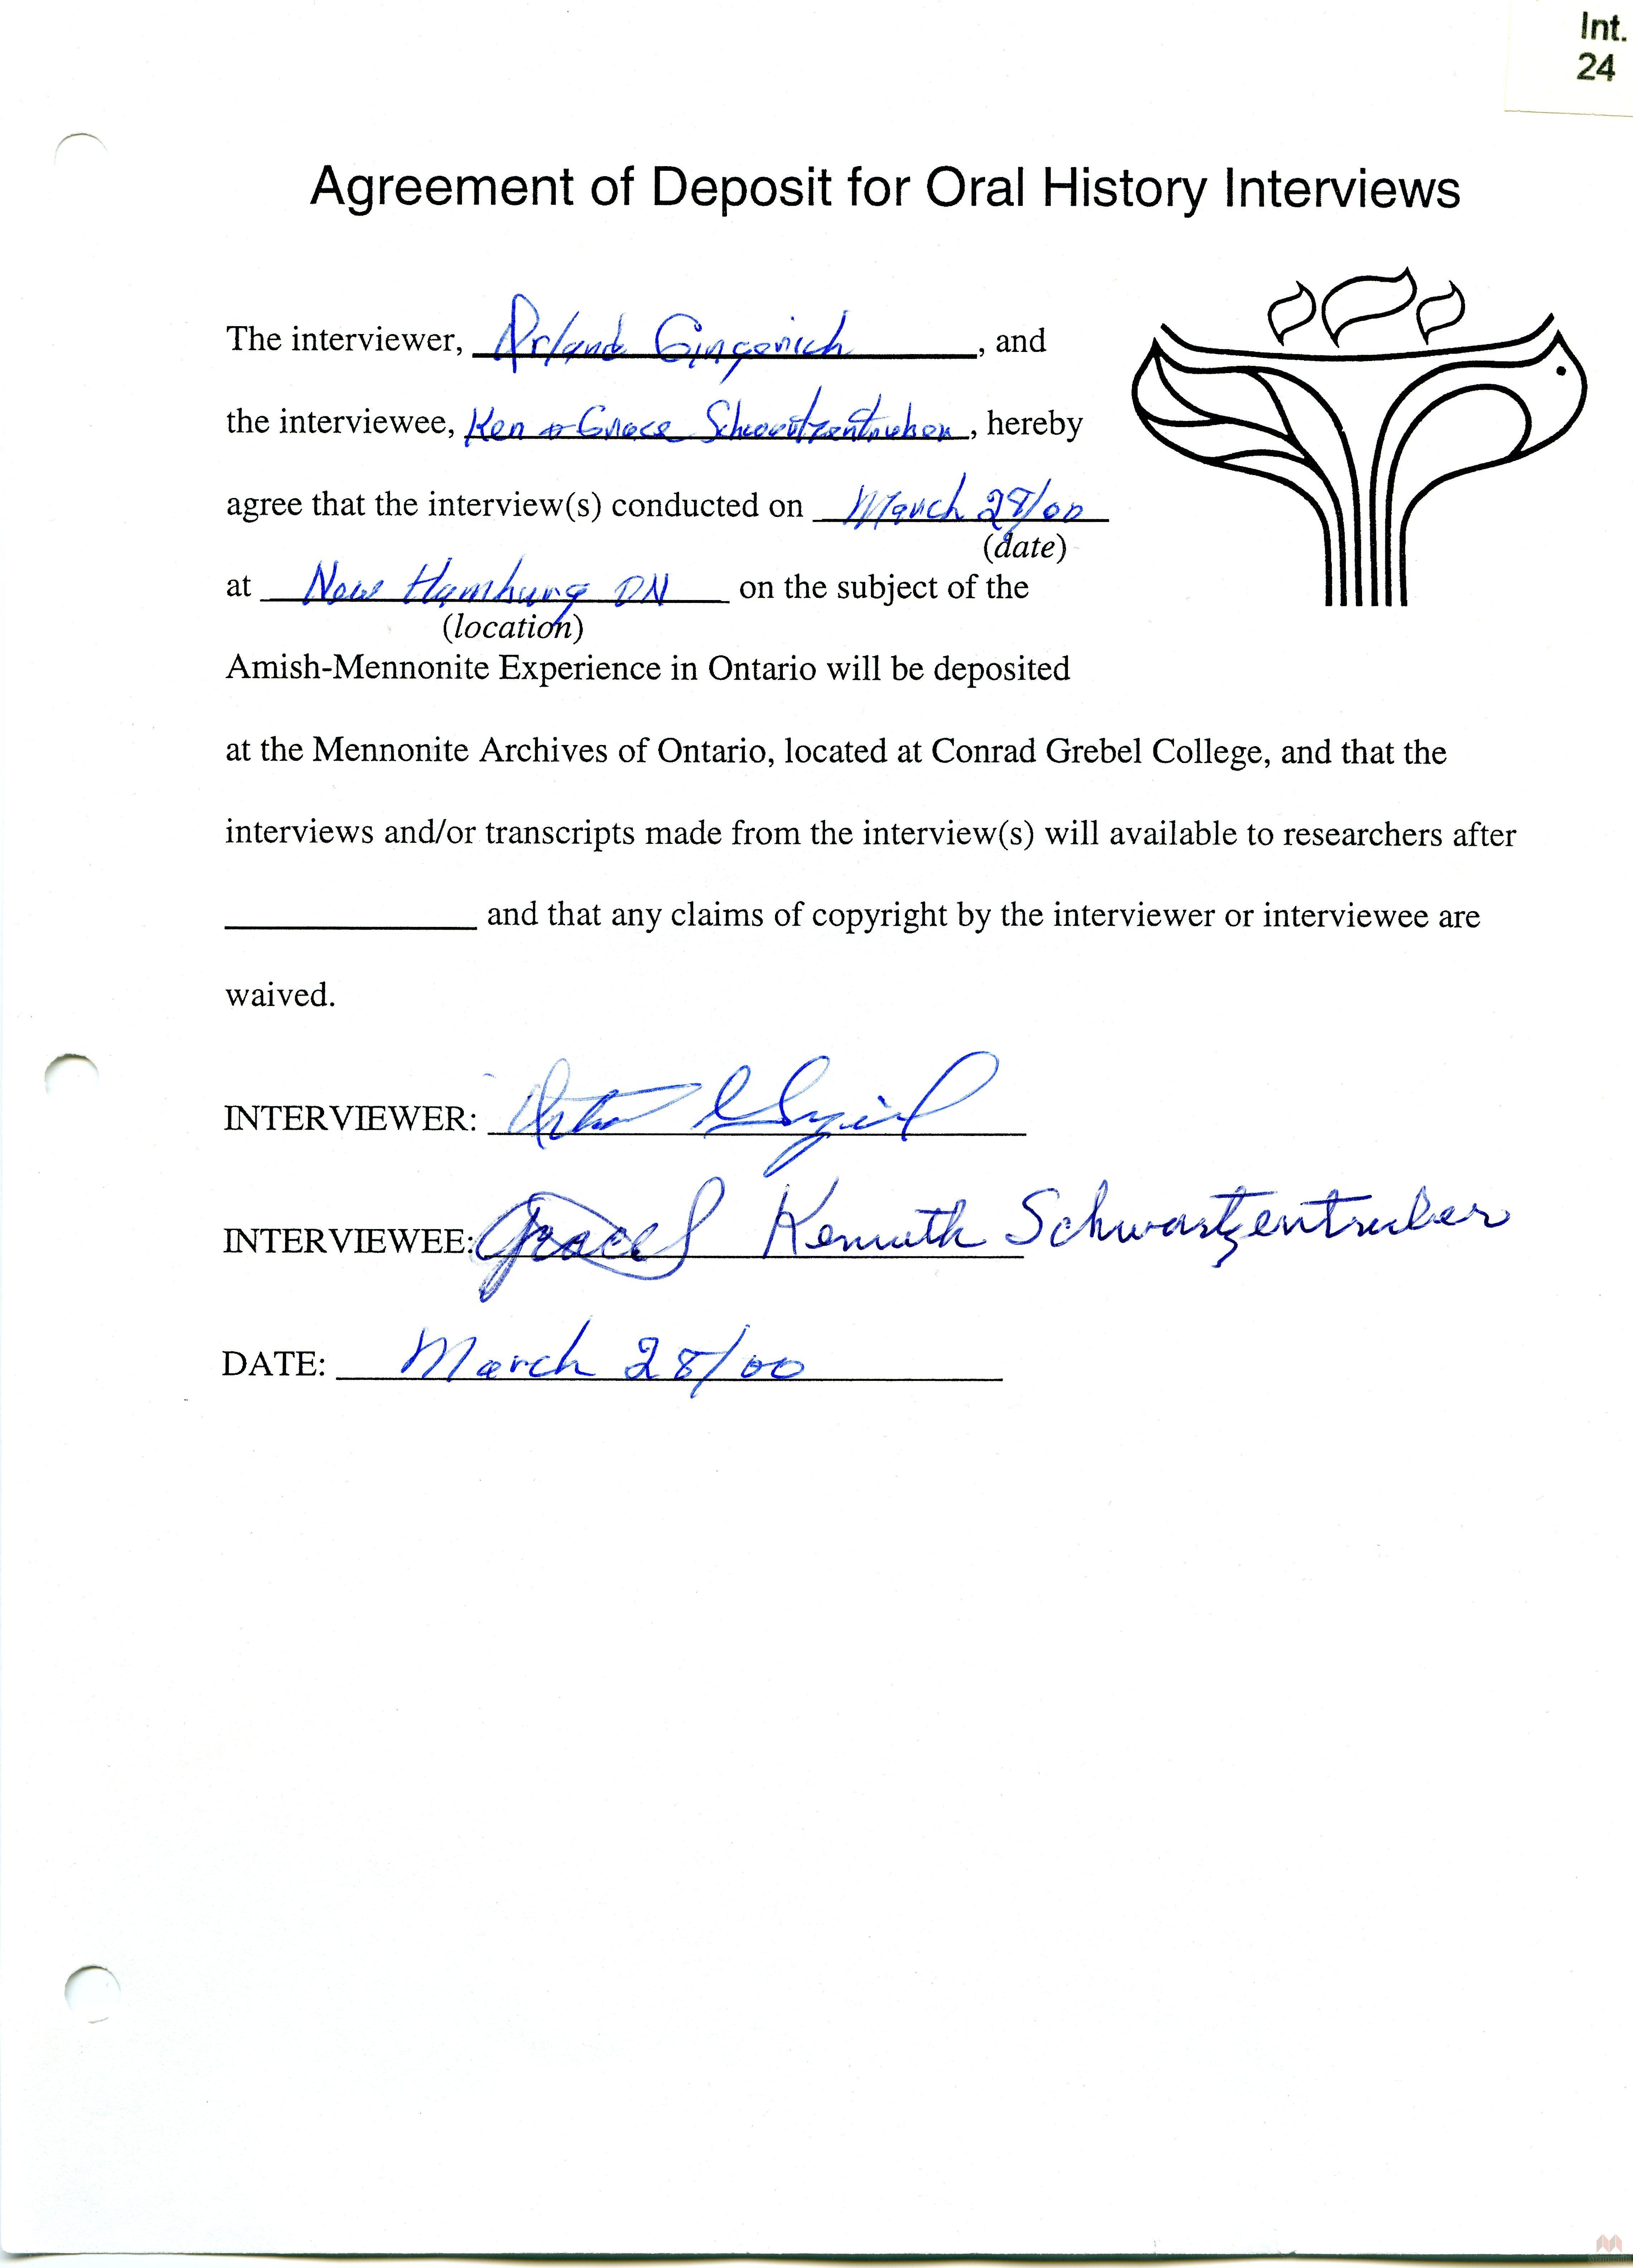 Int.
24
Agreement of Deposit for Oral History Interviews
The interviewer, Orland Gingerich, and
the interviewee, Ken & Grace Schwartzentruber, hereby
agree that the interview(s) conducted on March 28/00
(date)
at New Hamburg ON on the subject of the
(location)
Amish-Mennonite Experience in Ontario will be deposited
at the Mennonite Archives of Ontario, located at Conrad Grebel College, and that the
interviews and/or transcripts made from the interview(s) will available to researchers after
and that any claims of copyright by the interviewer or interviewee are
waived.
INTERVIEWER:
INTERVIEWEE: Grace S Kenneth Schwartzentruber
DATE: March 28/00